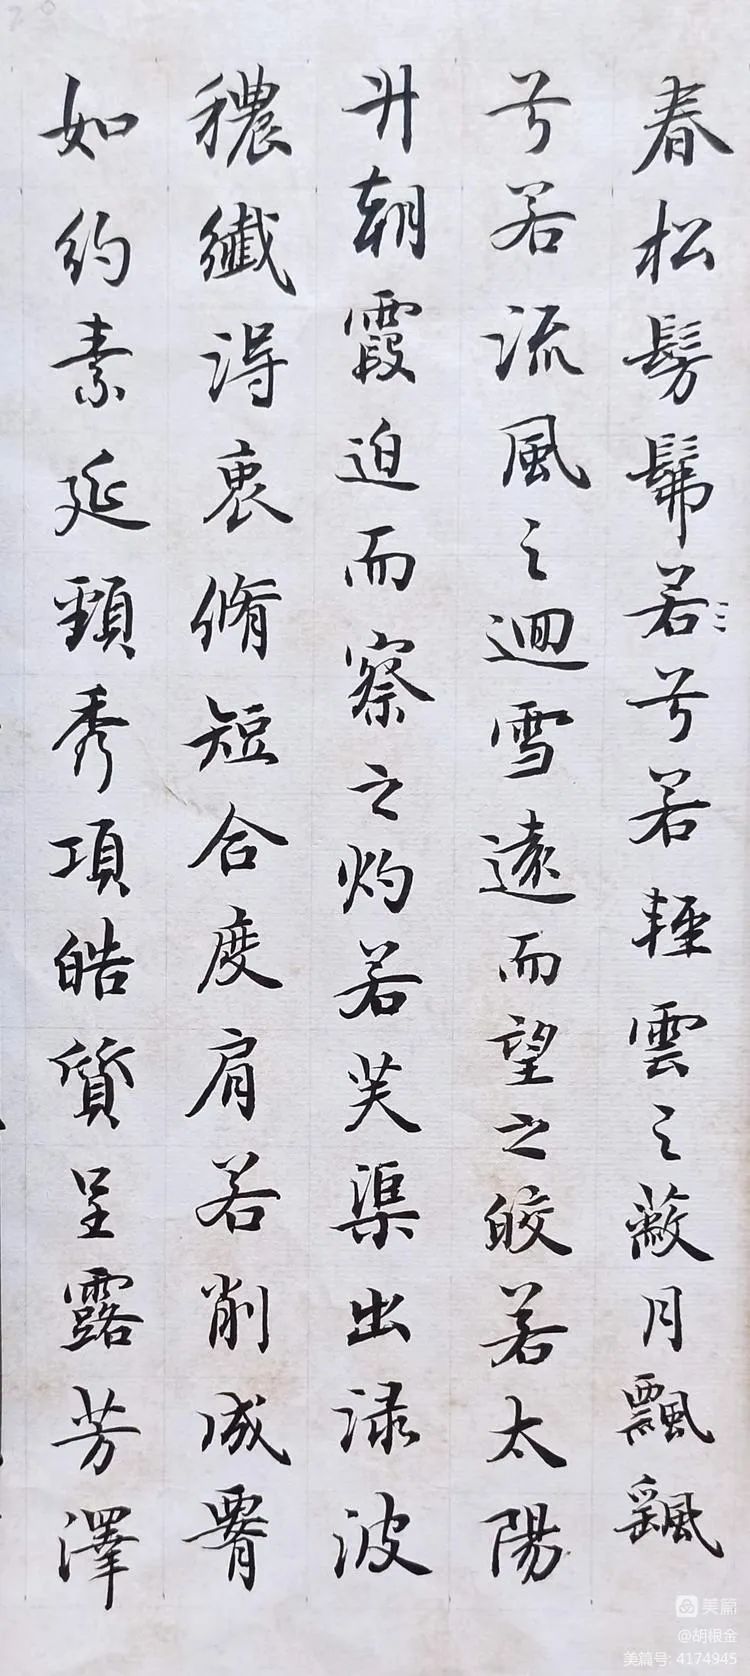 春松髣髴若兮若輕雲之蔽月飄颻
兮若流風之迴雪遠而望之皎若太陽
升朝霞迫而察之灼若芙渠出渌波
穠纖得衷脩短合度肩若削成署
如約素延頸秀項皓質呈露芳澤
美篇
@胡根金
美篇号: 4174945